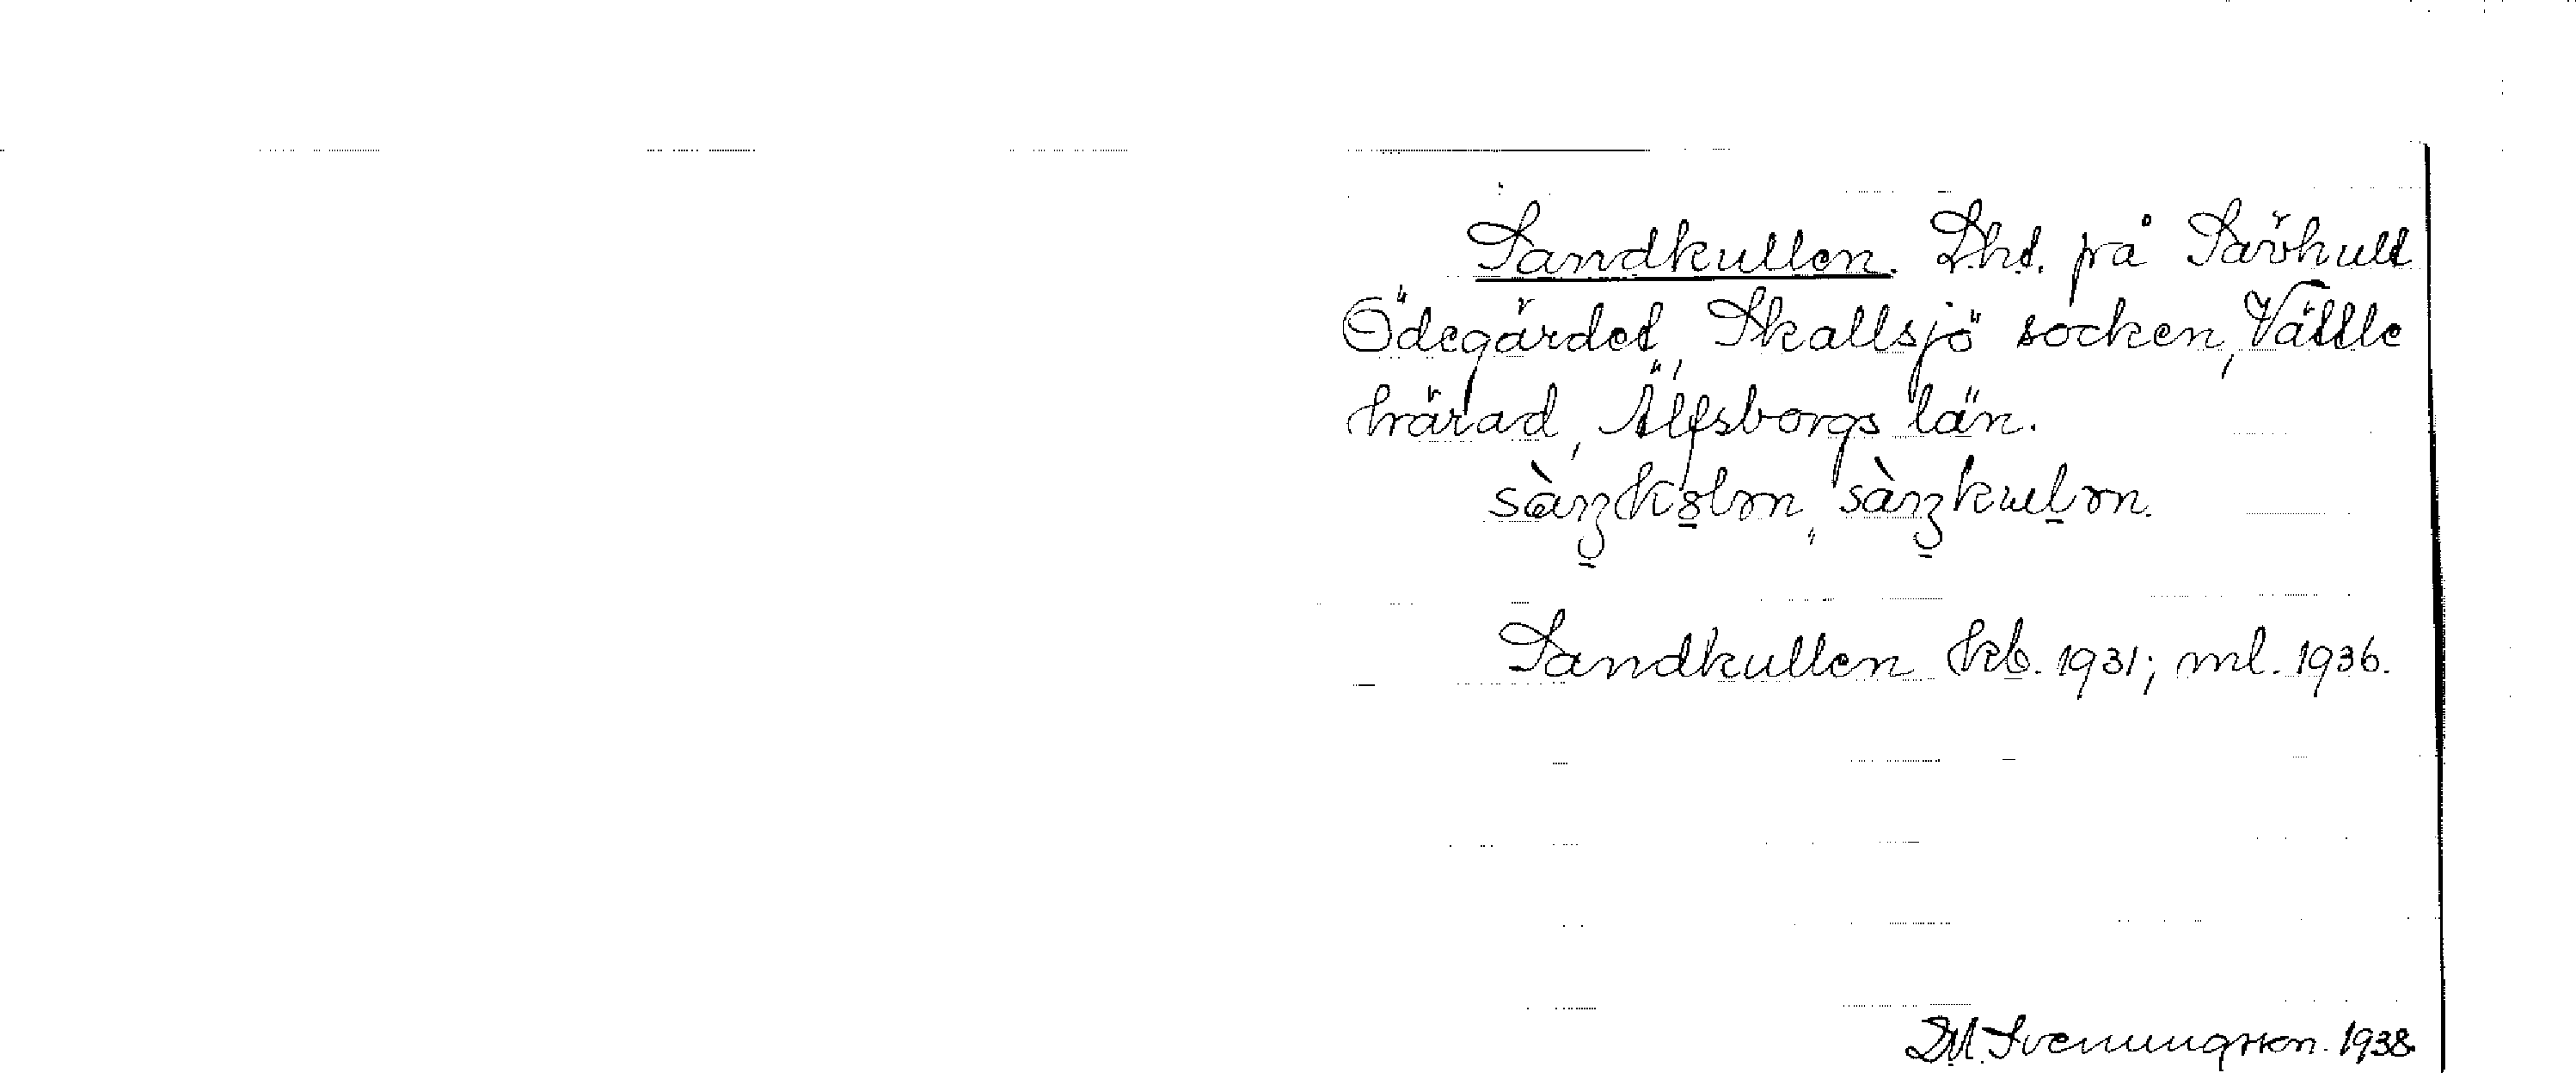 Sandkullen. Lht. på Sävhult
Ödegärdet, Skallsjö socken, Vättle
härad, Älfsborgs län.
Sandkullen kb. 1931; ml. 1936.
D.M. Svenningsson. 1938.